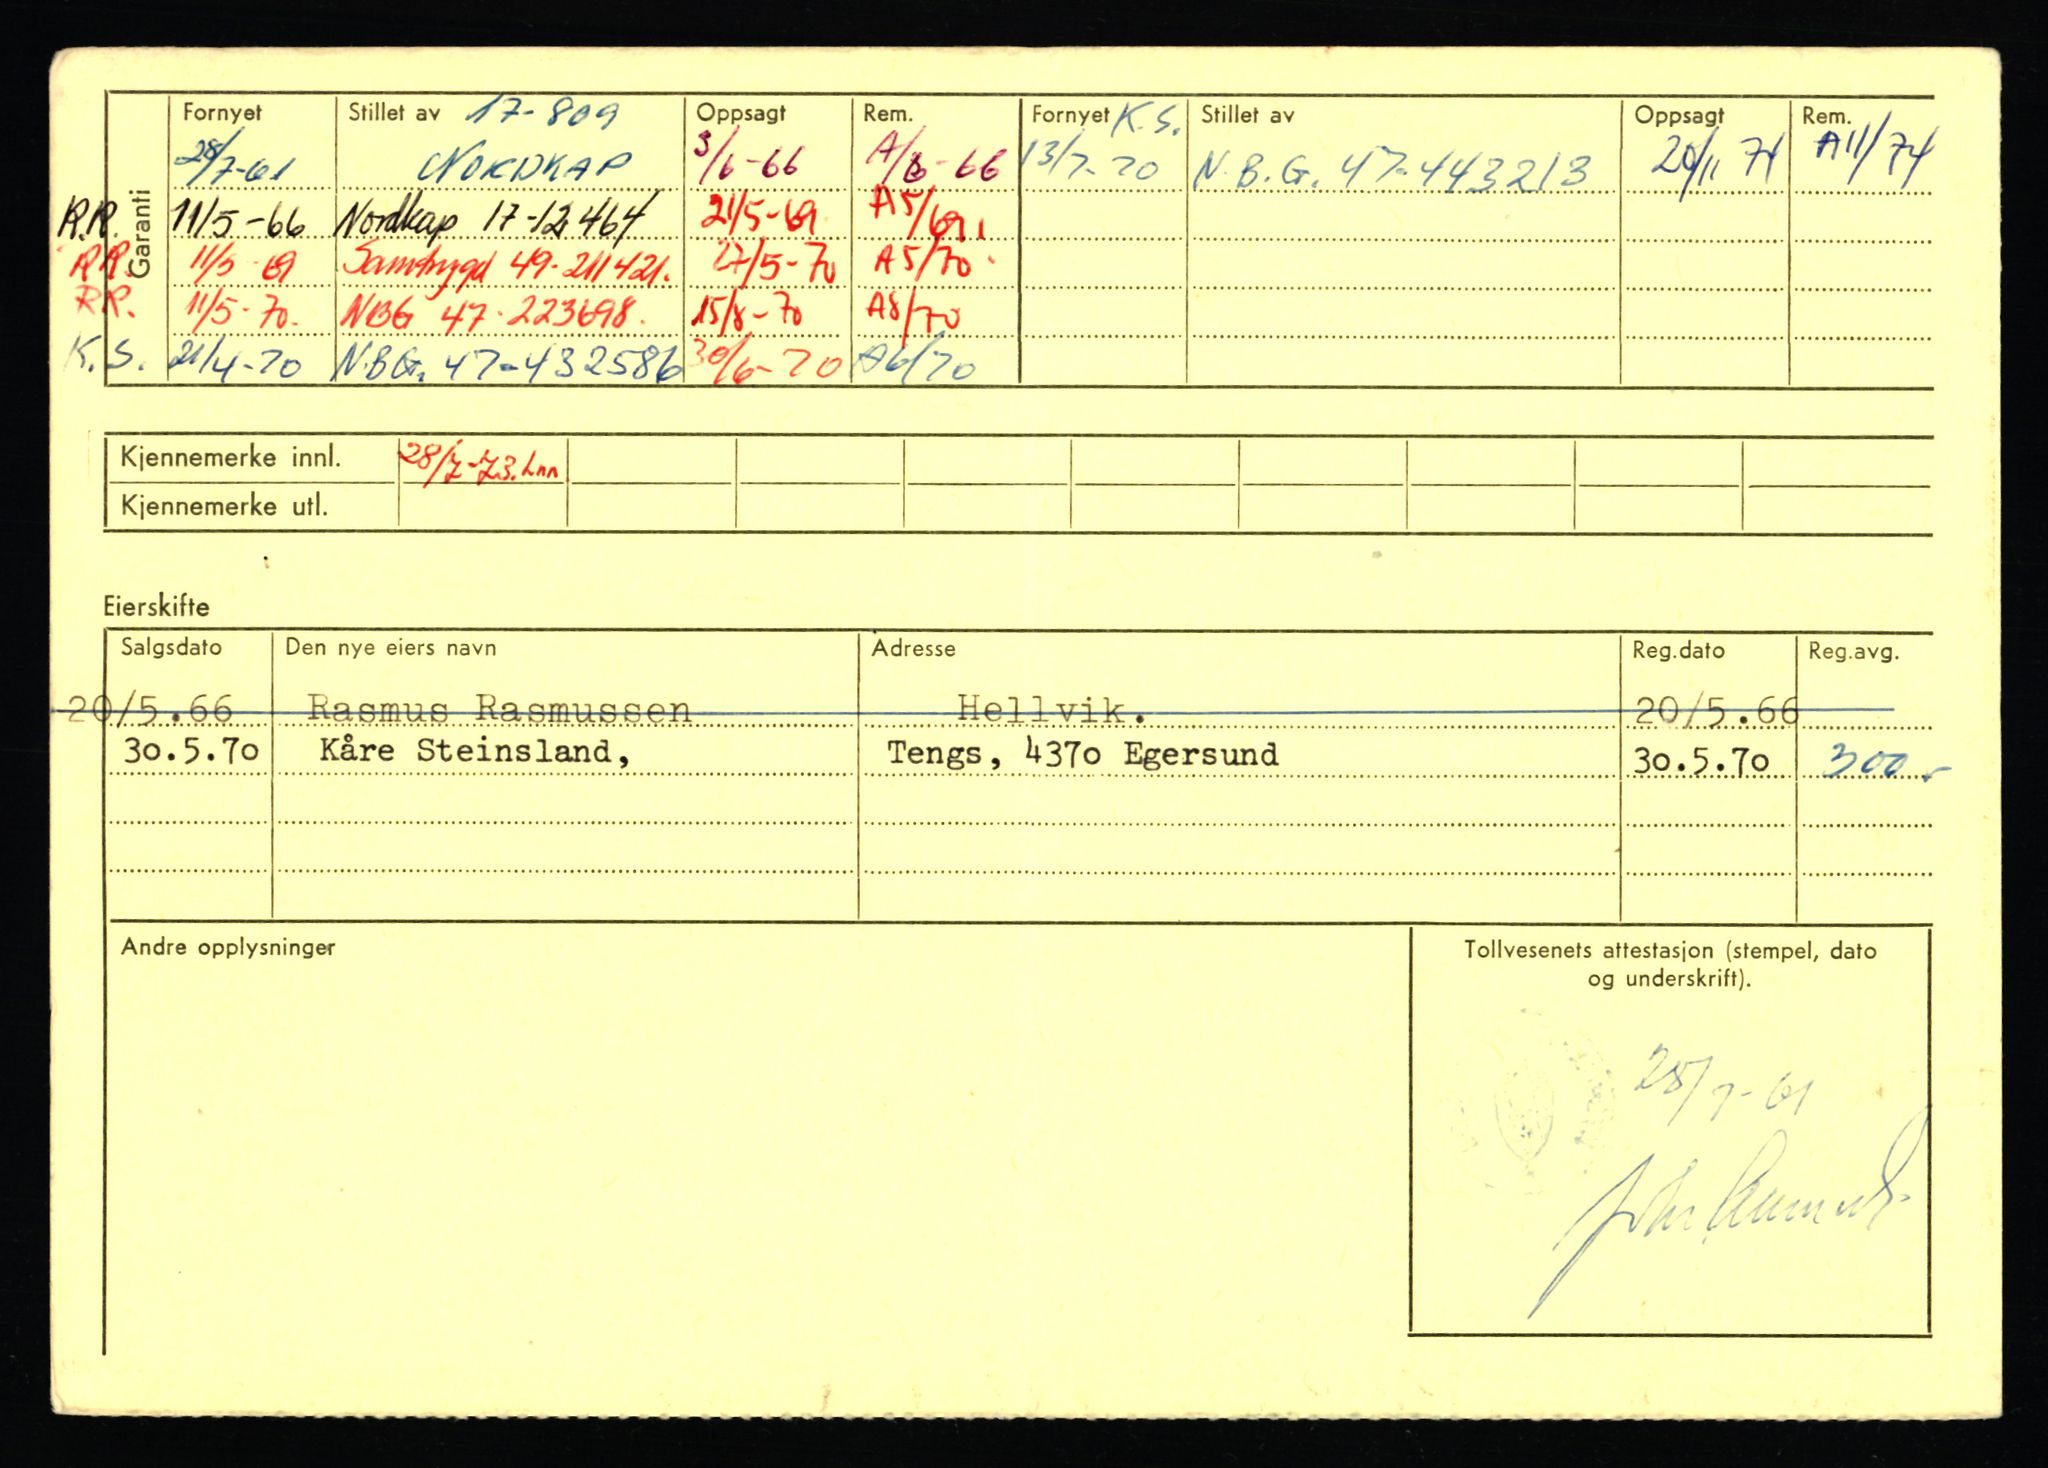 Garanti
Fornyet Stillet av 17-809 Oppsagt Rem. Fornyet K.S. Stillet av Oppsagt Rem.
28/7-61 NORDKAP 3/6-66 A/6-66 13/7-70 N.B.G. 47-443213 20/11 74 A11/74
R.R. 11/5-66 Nordkap 17-12464 21/5-69 A5/69
R.R. 11/5-69 Samtrygd 49-211421. 27/5-70 A5/70
R.R. 11/5-70. NBG 47-223698. 15/8-70 A8/70
K.S. 21/4-70 N.B.G. 47-432586 30/6-70 A6/70
Kjennemerke innl. 28/7-73.
Kjennemerke utl.
Eierskifte
Salgsdato Den nye eiers navn Adresse Reg.dato Reg.avg.
20/5.66 Rasmus Rasmussen Hellvik. 20/5.66
30.5.70 Kåre Steinsland, Tengs, 4370 Egersund 30.5.70 300.-
Andre opplysninger
Tollvesenets attestasjon (stempel, dato
og underskrift).
28/7-61